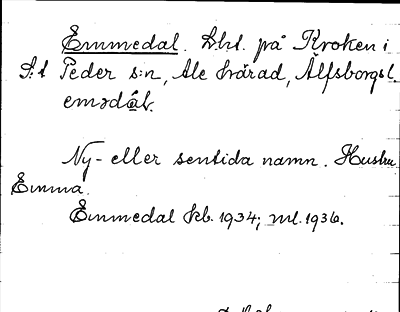 Emmedal. Lht. på Kroken i
S:t Peder s:n, Ale härad, Älfsborgs l.
emədȧl.
Ny- eller sentida namn. Hustru
Emma.
Emmedal kb. 1934; ml. 1936.